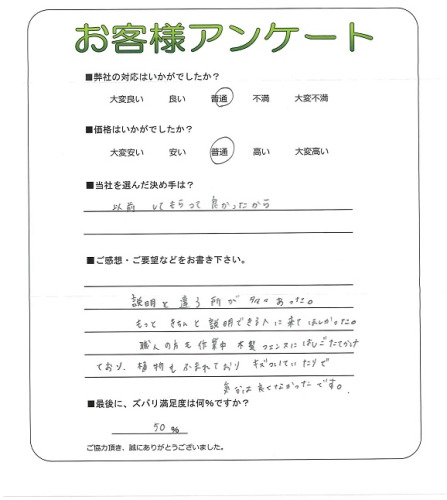 お客様アンケート
■弊社の対応はいかがでしたか？
大変良い 良い 普通 不満 大変不満
■価格はいかがでしたか？
大変安い 安い 普通 高い 大変高い
■当社を選んだ決め手は？
以前 してもらって 良かったから
■ご感想・ご要望などをお書き下さい。
説明と違う所が多々あった。
もっときちんと説明できる人に来てほしかった。
職人の方も作業中 木製フェンスにはしごたてかけ
ており、植物もふまれており キズついていたりで
気分は良くなかったです。
■最後に、ズバリ満足度は何%ですか？
50 %
ご協力頂き、誠にありがとうございました。